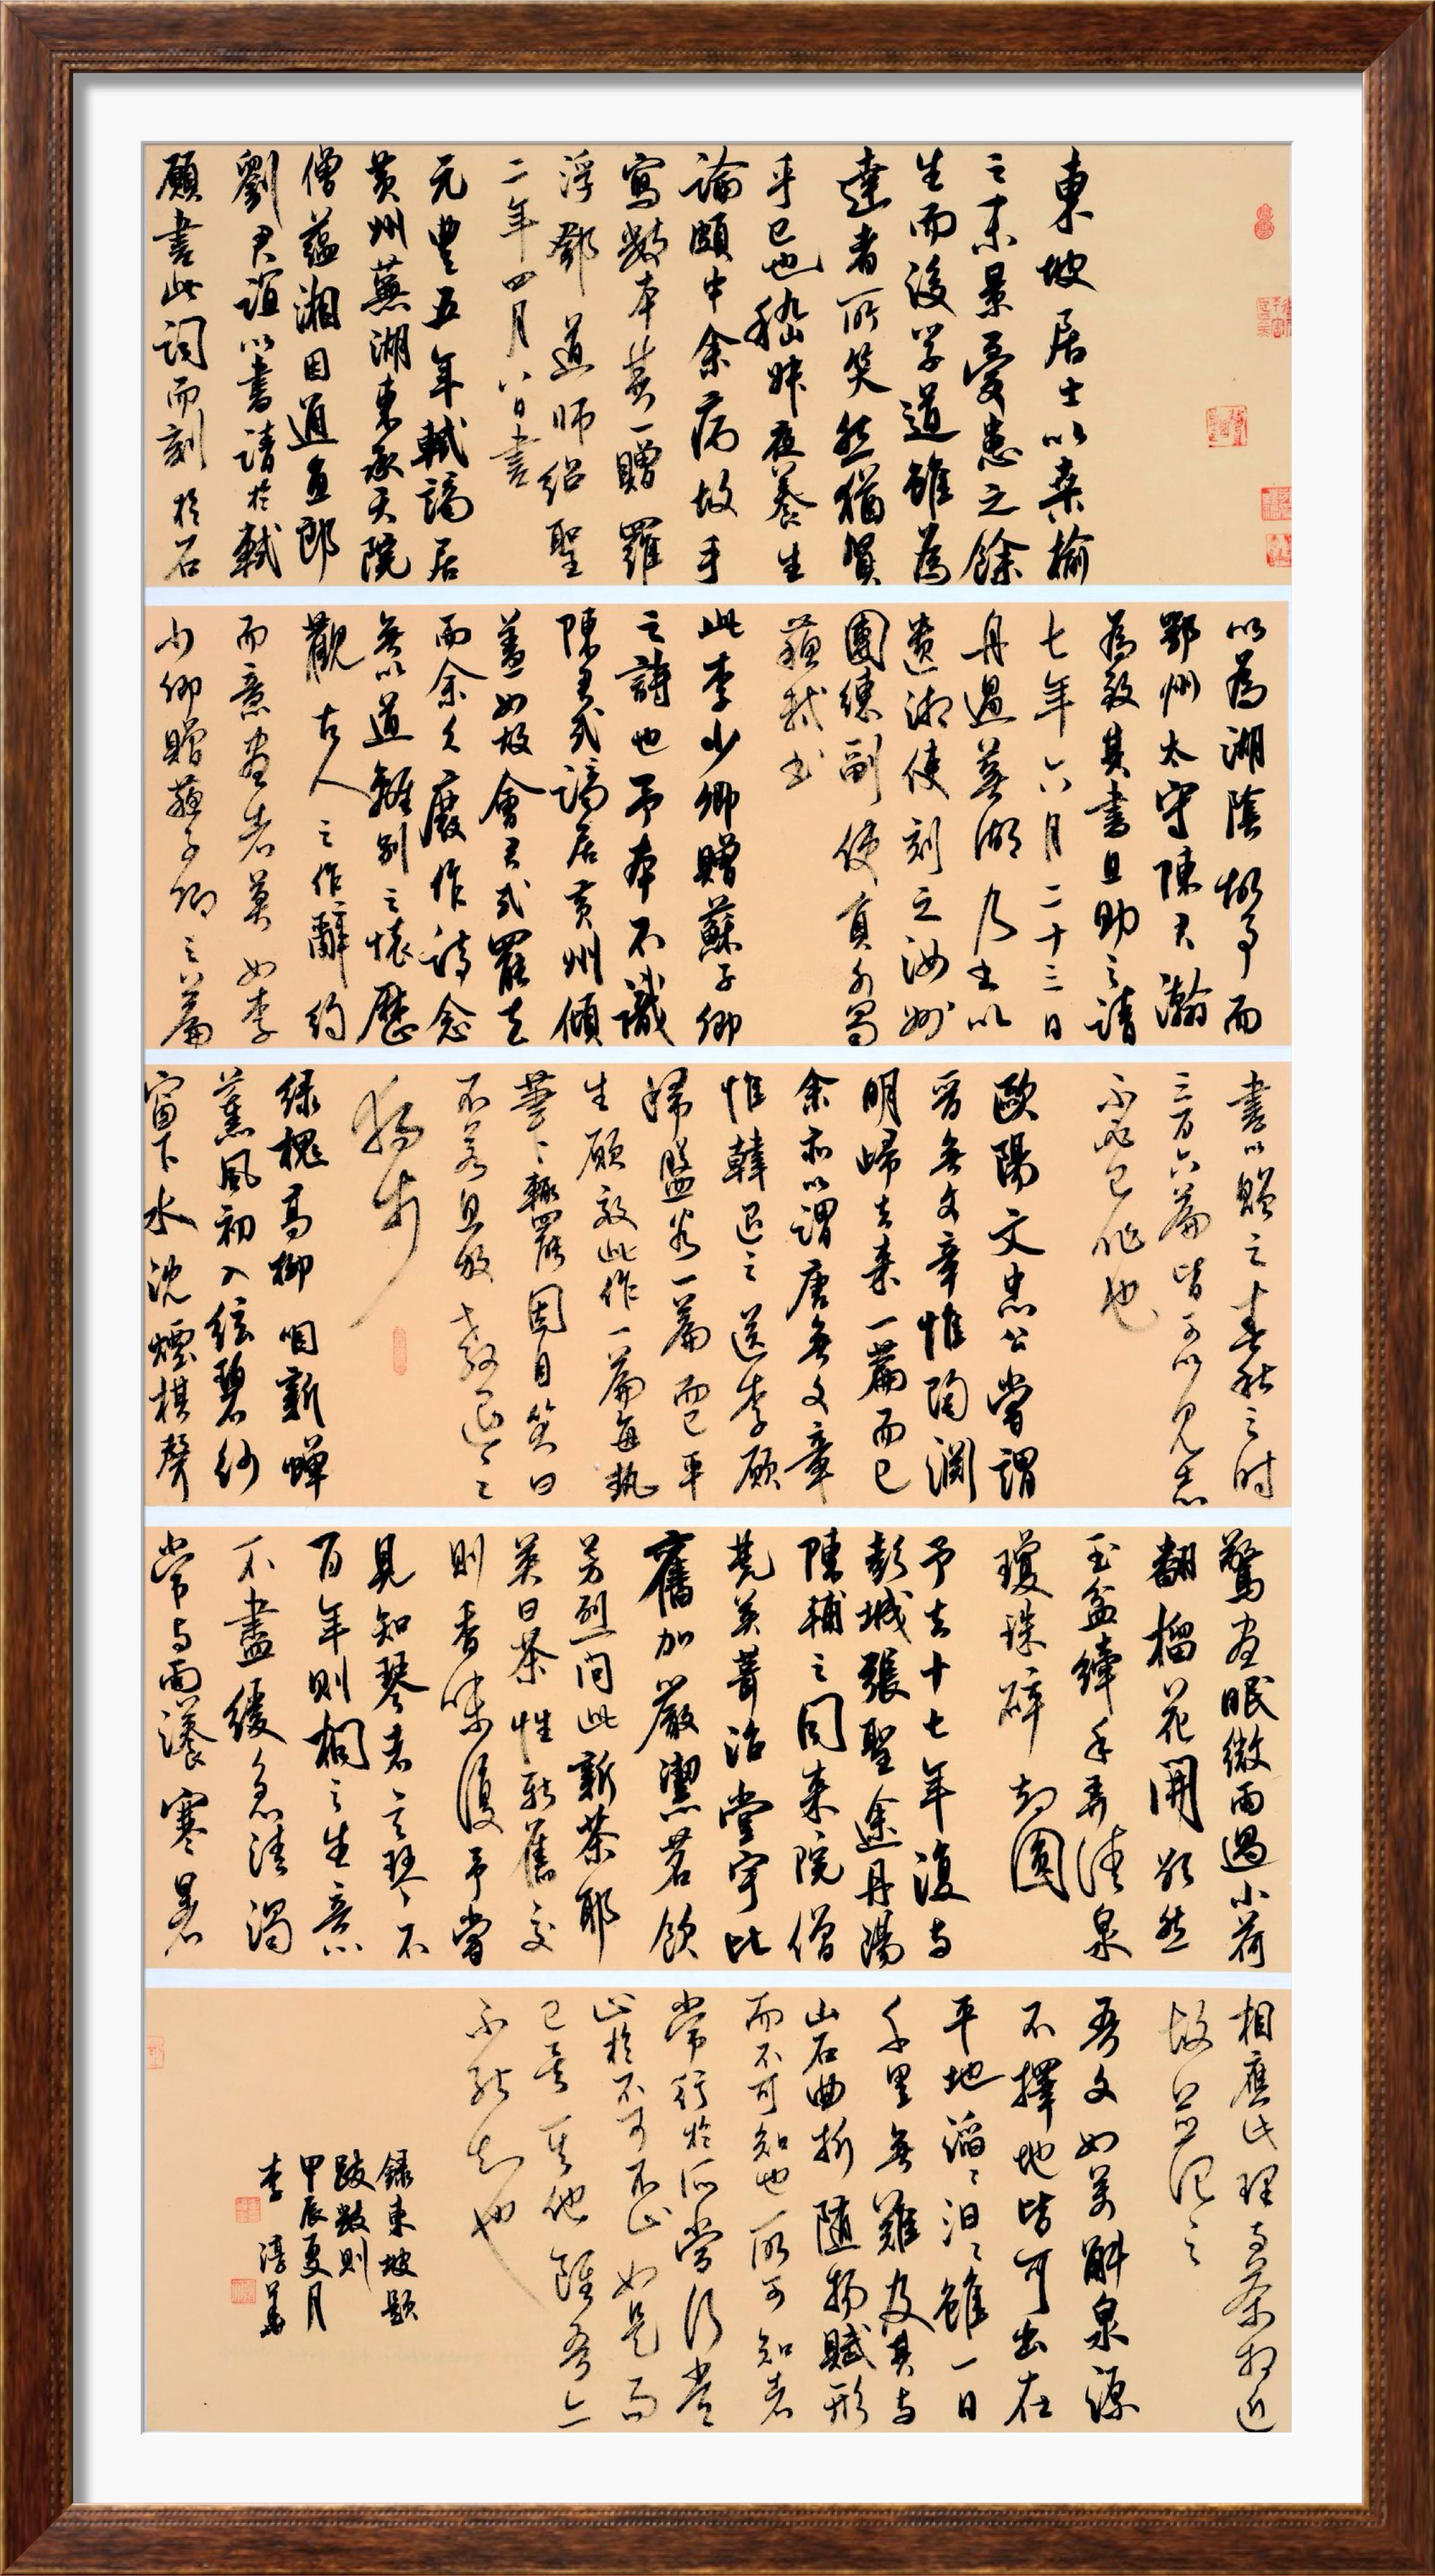 東坡居士以桑榆
之末景憂患之餘
生而後學道雖為
達者所笑然猶賢
乎已也嵇叔夜養生
論頗中余病故手
寫數本其一贈羅
浮鄧道師紹聖
二年四月八日書
元豐五年軾謫居
黃州蕪湖東承天院
僧蘊湘因通直郎
劉君誼以書請於軾
願書此詞而刻於石
以為湖陰故事而
鄂州太守陳君瀚
為致其書且助之請
七年六月二十三日
舟過蕪湖乃書以
遺湘使刻之汝州
團練副使員外置
蘇軾書
此李少卿贈蘇子卿
之詩也予本不識
陳君式謫居黃州傾
蓋如故會君式罷去
而余久廢作詩念
無以道離別之懷歷
觀古人之作辭約
而意盡者莫如李
少卿贈蘇子卿之篇
書以贈之春秋之時
三百六篇皆可以見志
不必己作也
歐陽文忠公嘗謂
晉無文章惟陶淵
明歸去來一篇而已
余亦以謂唐無文章
惟韓退之送李願
歸盤谷一篇而已平
生願效此作一篇每執
筆輒罷因自笑曰
不若且放教退之
獨步
綠槐高柳咽新蟬
薰風初入弦碧紗
窗下水沈煙棋聲
驚晝眠微雨過小荷
翻榴花開欲然
玉盆纖手弄清泉
瓊珠碎却圓
予去十七年復與
彭城張聖途丹陽
陳輔之同來院僧
梵英葺治堂宇比
舊加嚴潔茗飲
芳烈問此新茶耶
英曰茶性新舊交
則香味復予嘗
見知琴者言琴不
百年則桐之生意
不盡緩急清濁
常與雨暘寒暑
相應此理與茶相近
故並記之
吾文如萬斛泉源
不擇地皆可出在
平地滔滔汩汩雖一日
千里無難及其與
山石曲折隨物賦形
而不可知也所可知者
常行於所當行常
止於不可不止如是而
已矣其他雖吾亦
不能知也
錄東坡題
跋數則
甲辰夏月
李